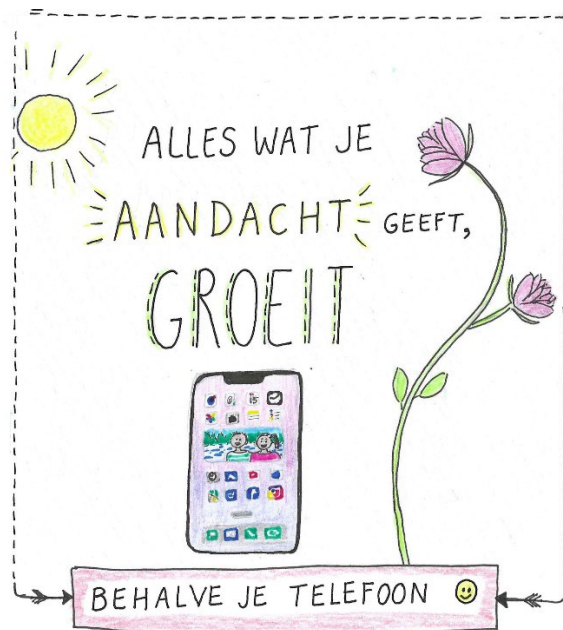 ALLES WAT JE
AANDACHT GEEFT,
GROEIT
15
BEHALVE JE TELEFOON